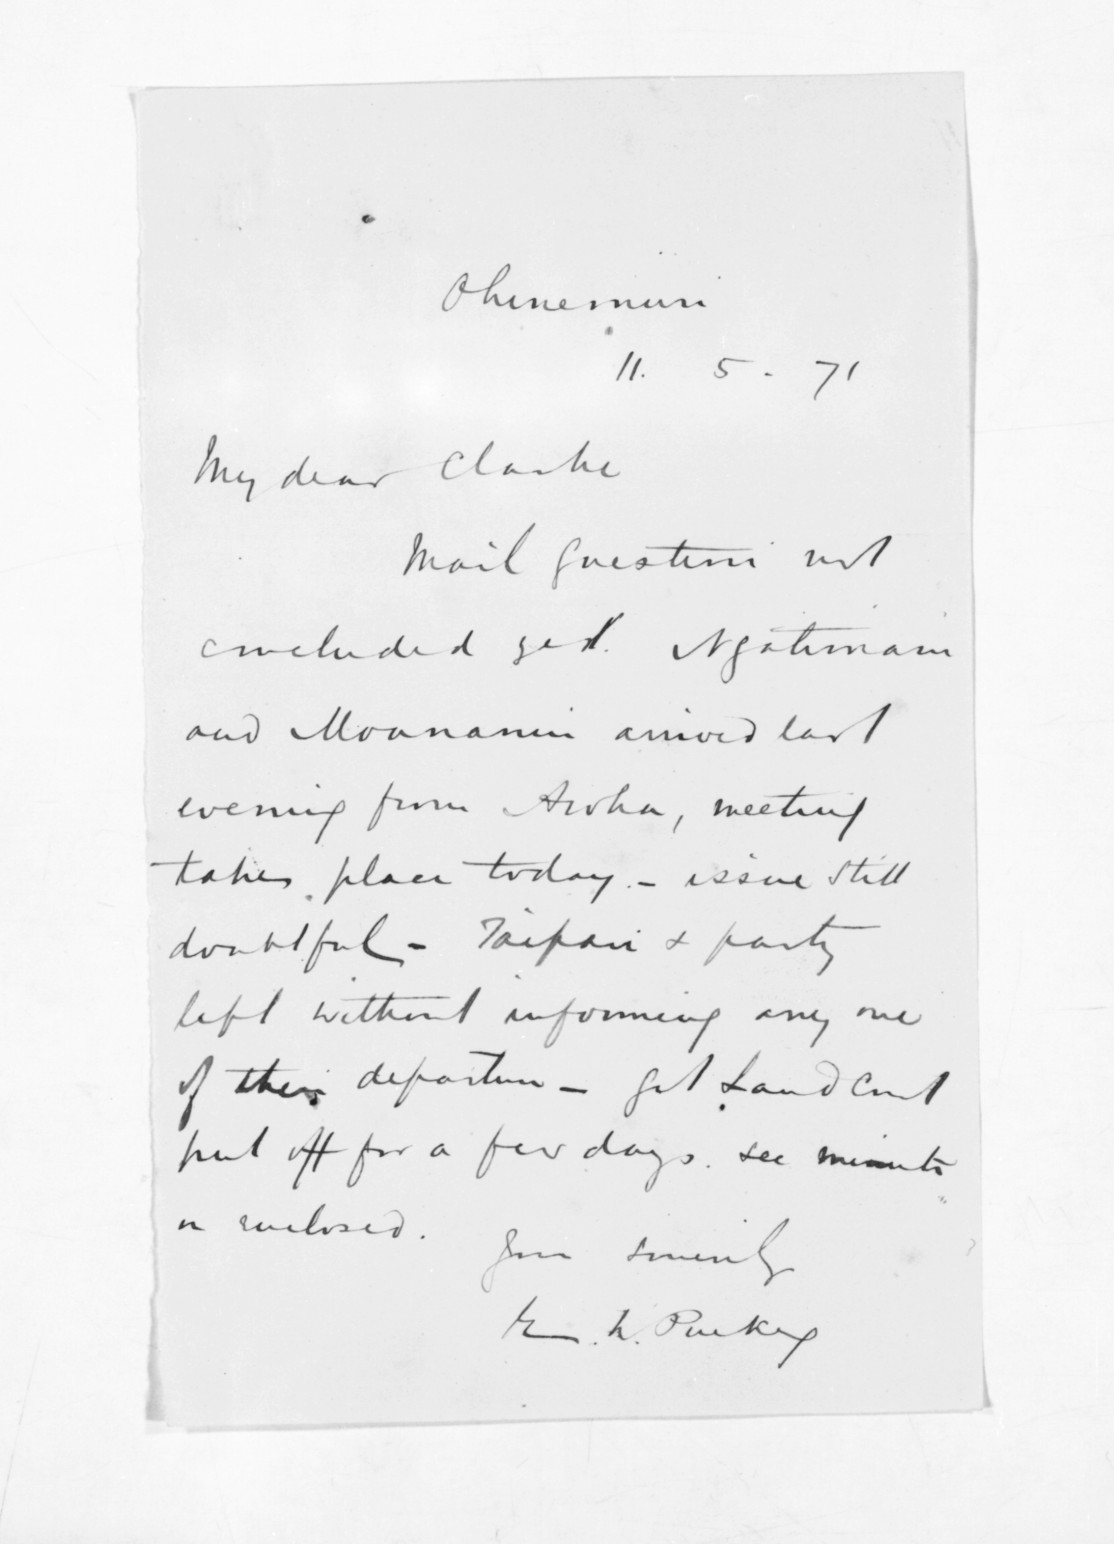 Ohinemuri
11. 5. 71
My dear Clarke
Mail question not
concluded yet. Ngatimaru
and Moananui arrived last
evening from Aroha, meeting
takes place today - issue still
doubtful - Taipari & party
left without informing any one
of their departure - get Land Court
put off for a few days. see minute
on enclosed.
Your sincerely
E. W. Puckey